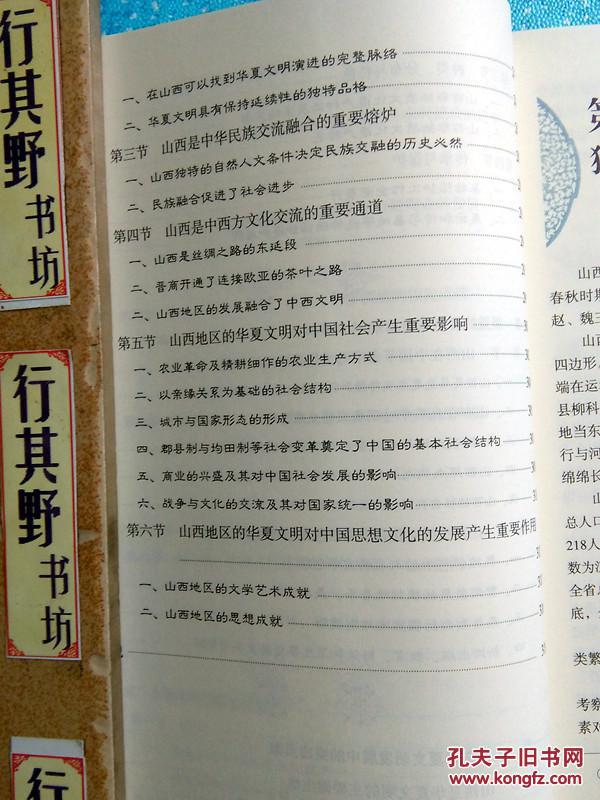 一、在山西可以找到华夏文明演进的完整脉络
二、华夏文明具有保持延续性的独特品格
第三节 山西是中华民族交流融合的重要熔炉
一、山西独特的自然人文条件决定民族交融的历史必然
二、民族融合促进了社会进步
第四节 山西是中西方文化交流的重要通道
一、山西是丝绸之路的东延段
二、晋商开通了连接欧亚的茶叶之路
二、山西地区的发展融合了中西文明
第五节 山西地区的华夏文明对中国社会产生重要影响
一、农业革命及精耕细作的农业生产方式
二、以亲缘关系为基础的社会结构
三、城市与国家形态的形成
四、郡县制与均田制等社会变革奠定了中国的基本社会结构
五、商业的兴盛及其对中国社会发展的影响
六、战争与文化的交流及其对国家统一的影响
第六节 山西地区的华夏文明对中国思想文化的发展产生重要作用
一、山西地区的文学艺术成就
二、山西地区的思想成就
山西
春秋时期
赵、魏三
山西
四边形。
端在运
县柳科
地当东
行与河
绵绵长
山
总人口
218人
数为汉
全省总
底，
类繁
考察
素对
行其野书坊
行其野书坊
行
孔夫子旧书网
www.kongfz.com